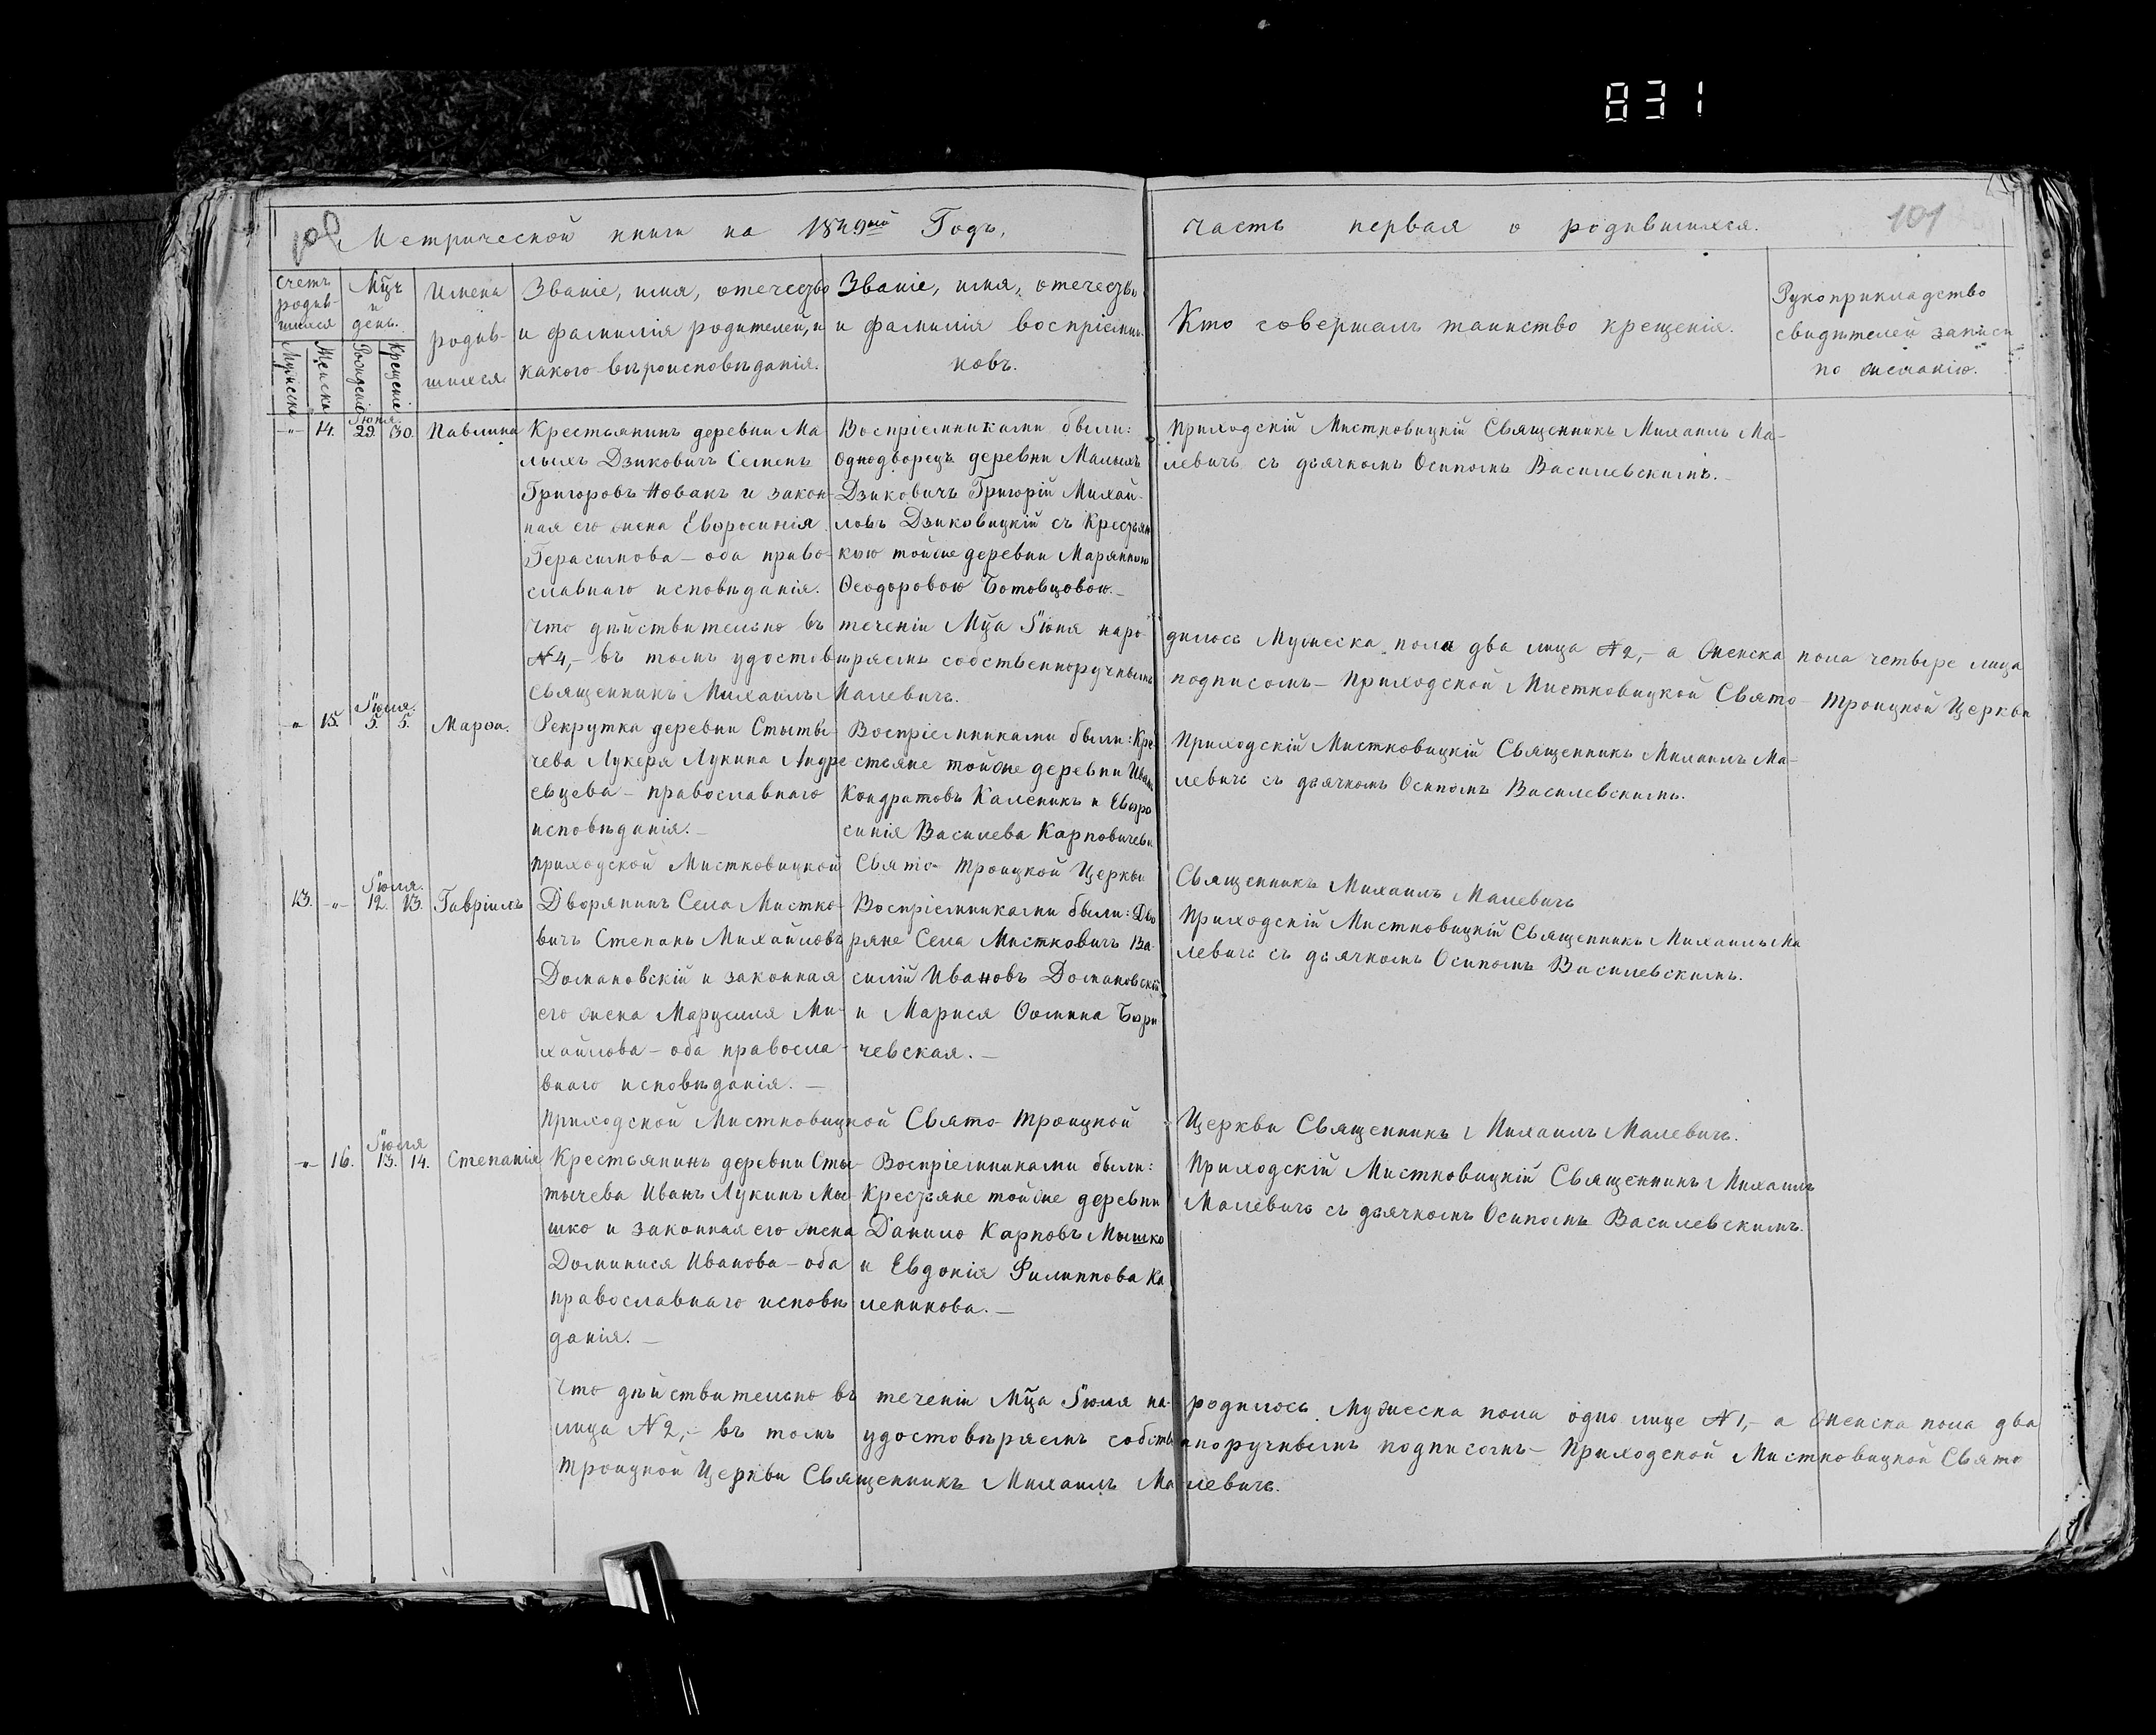 831
101
Метрической книги на 1849ый Годъ,
часть первая о родившихся.
Счетъ родив-шихся
Мцъ и день.
Имена родив-шихся
Званіе, имя, отечество и фамилія родителей, и какого вѣроисповѣданія.
Званіе, имя, отечество и фамилія воспріемни-ковъ.
Кто совершалъ таинство крещенія.
Рукоприкладство свидѣтелей записи по желанію.
Мужеска
Женска
Рожденіе
Крещеніе
-"- 14. Іюня 29. 30. Павлина
Крестьянинъ деревни Ма-
лыхъ Дзиковичъ Семенъ
Григоровъ Новакъ и закон-
ная его жена Евфросинія
Герасимова – оба право-
славнаго исповѣданія.
Воспріемниками были:
Однодворецъ деревни Малыхъ
Дзиковичъ Григорій Михай-
ловъ Дзиковицкій съ Крестьян-
кою тойже деревни Марянною
Ѳеодоровою Ботовцовою. –
Приходскій Мистковицкій Священникъ Михаилъ Ма-
левичъ съ дьячкомъ Осипомъ Василевскимъ. –
Что дѣйствительно въ теченіи Мца Іюня наро-дилось Мужеска пола два лица №2, – а Женска пола четыре лица
№4, – въ томъ удостовѣряемъ собственноручнымъ подписомъ – Приходской Мистковицкой Свято-Троицкой Церкви
Священникъ Михаилъ Малевичъ.
" 15. Іюля. 5. 5. Марѳа.
Рекрутка деревни Стыты-
чева Лукеря Лукина Андре
евцева – православнаго
исповѣданія. –
Воспріемниками были: Кре-
стьяне тойже деревни Иванъ
Кондратовъ Каленикъ и Евфро
синія Василева Карповичева
Приходскій Мистковицкій Священникъ Михаилъ Ма-
левичъ съ дьячкомъ Осипомъ Василевскимъ.
Приходской Мистковицкой Свято-Троицкой Церкви Священникъ Михаилъ Малевичъ
13. -"- Іюля. 12. 13. Гавріилъ
Дворянинъ Села Мистко-
вичъ Степанъ Михайловъ
Домановскій и законная
его жена Марцеля Ми-
хайлова – оба правосла-
внаго исповѣданія. –
Воспріемниками были: Дво
ряне Села Мистковичъ Ва-
силій Ивановъ Домановскій
и Марися Ѳомина
чевская. –
Приходскій Мистковицкій Священникъ Михаилъ Ма
левичъ съ дьячкомъ Осипомъ Василевскимъ.
Приходской Мистковицкой Свято-Троицкой Церкви Священникъ Михаилъ Малевичъ.
-"- 16. Іюля 13. 14. Степанія
Крестьянинъ деревни Сты-
тычева Иванъ Лукинъ Мы-
шко и законная его жена
Доминися Иванова – оба
православнаго исповѣ
данія. –
Воспріемниками были:
Крестьяне тойже деревни
Данило Карповъ Мышко
и Евдокія Филиппова Ка
леникова. –
Приходскій Мистковицкій Священникъ Михаилъ
Малевичъ съ дьячкомъ Осипомъ Василевскимъ.
Что дѣйствительно въ теченіи Мца Іюля на-родилось Мужеска пола одно лице №1, – а Женска пола два
лица №2, – въ томъ удостовѣряемъ собственноручнымъ подписомъ – Приходской Мистковицкой Свято
Троицкой Церкви Священникъ Михаилъ Малевичъ.